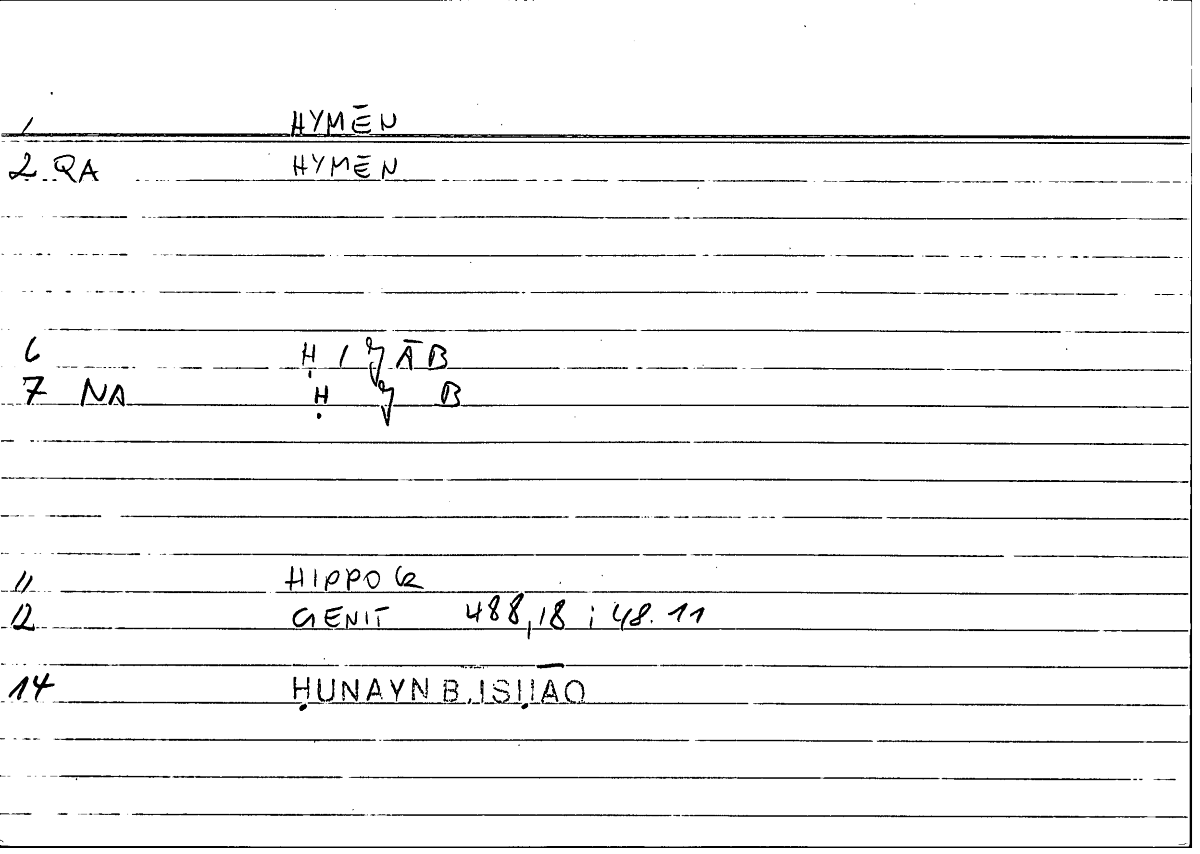 1 HYMĒN
2 QA HYMĒN
6 Ḥ I Ǧ Ā B
7 NA Ḥ Ǧ B
11 HIPPOCR
12 GENIT 488,18 ; 48.11
14 ḤUNAYN B. ISḤĀQ